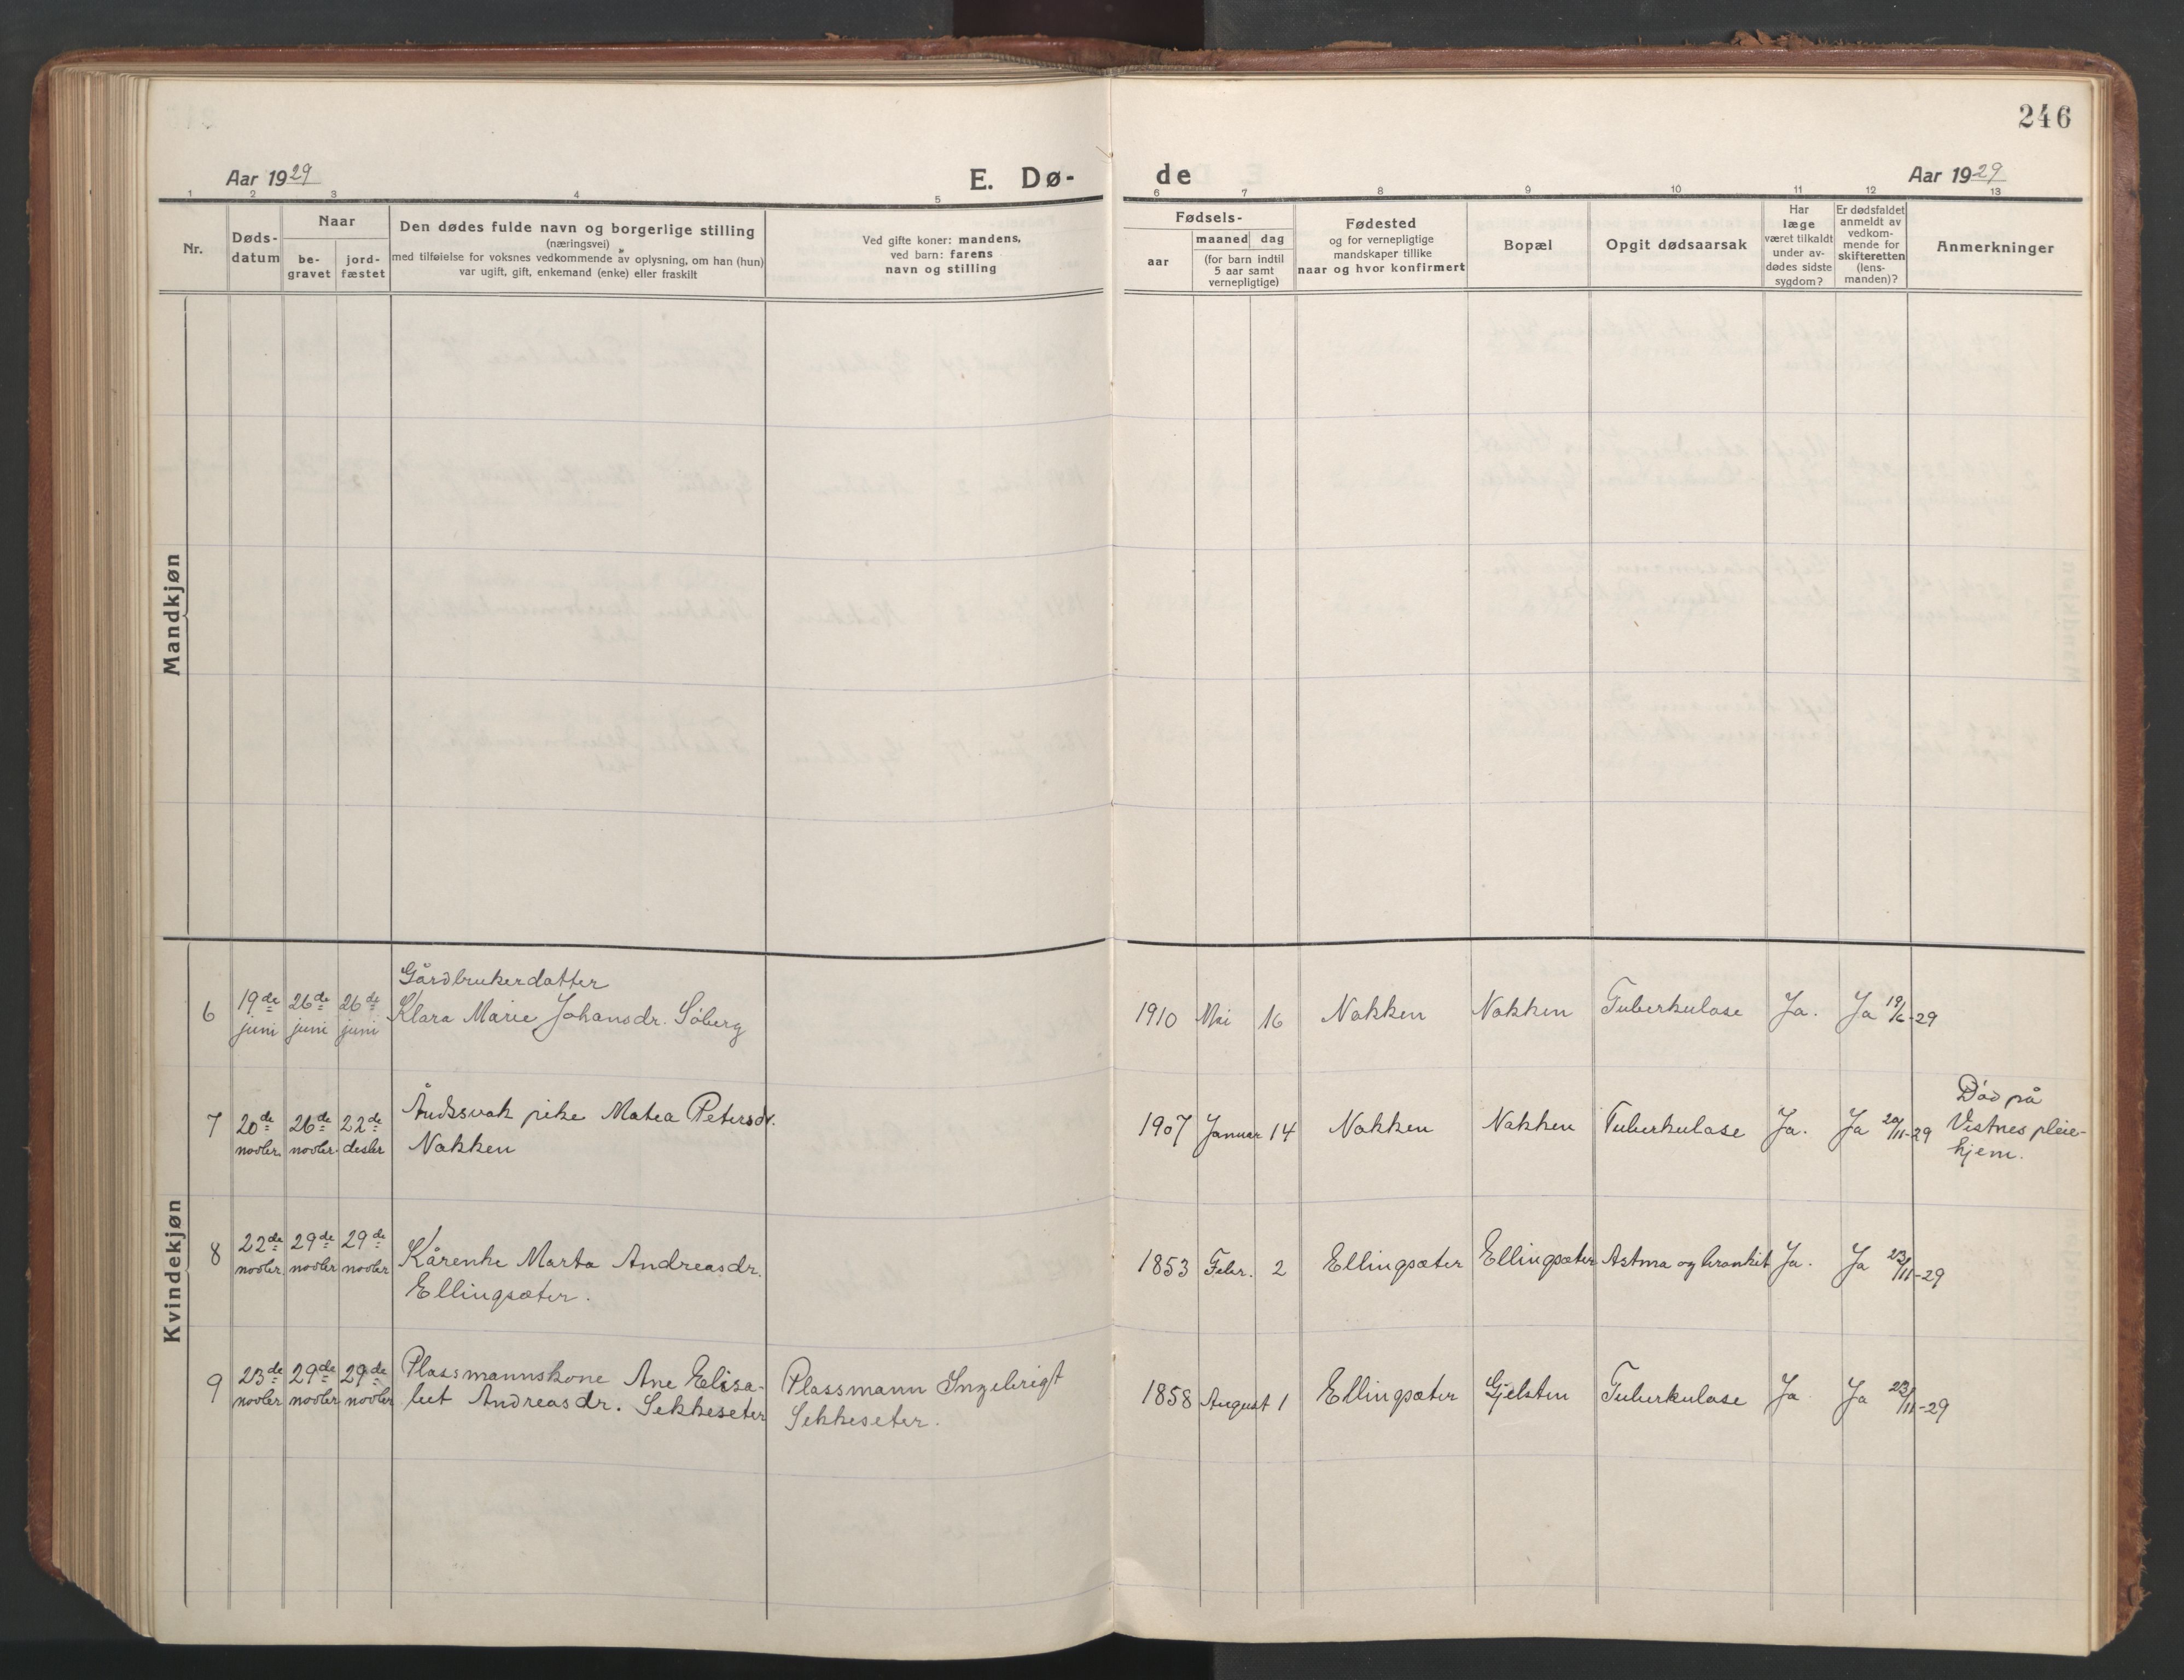 246
Aar 1929
E. Dø-
de
Aar 1929
1 2 3 4 5 6 7 8 9 10 11 12 13
Nr.
Døds-
datum
Naar
be-
gravet
jord-
fæstet
Den dødes fulde navn og borgerlige stilling
(næringsvei)
med tilføielse for voksnes vedkommende av oplysning, om han (hun)
var ugift, gift, enkemand (enke) eller fraskilt
Ved gifte koner: mandens,
ved barn: farens
navn og stilling
Fødsels-
aar
maaned dag
(for barn indtil
5 aar samt
vernepligtige)
Fødested
og for vernepligtige
mandskaper tillike
naar og hvor konfirmert
Bopæl
Opgit dødsaarsak
Har
læge
været tilkaldt
under av-
dødes sidste
sygdom?
Er dødsfaldet
anmeldt av
vedkom-
mende for
skifteretten
(lens-
manden)?
Anmerkninger
Mandkjøn
Kvindekjøn
Gårdbrukerdatter
6 19de 26de 26de Klara Marie Johansdr. Söberg 1910 Mai 16 Nakken Nakken Tuberkulose Ja. Ja 19/6-29
juni juni juni
7 20de 26de 22de Åndssvak pike Matea Petersdr. 1907 Januar 14 Nakken Nakken Tuberkulose Ja. Ja 20/11-29 Död på
novbr. novbr. desbr Nakken Vestnes pleie-
hjem.
8 22de 29de 29de Kårenke Marta Andreasdr. 1853 Febr. 2 Ellingsæter Ellingsæter Astma og bronkit Ja. Ja 23/11-29
novbr. novbr novbr Ellingsæter.
9 23de 29de 29de Plassmannskone Ane Elisa- Plassmann Ingebrigt 1858 August 1 Ellingsæter Gjelsten Tuberkulose Ja Ja 23/11-29
novbr novbr novbr bet Andreasdr. Sekkeseter Sekkeseter.